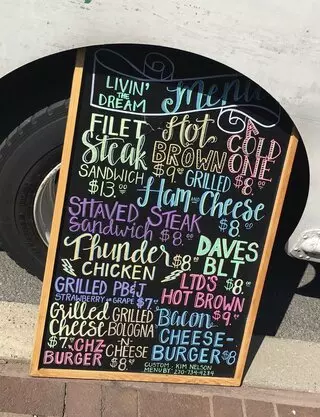 LIVIN'
THE
DREAM
Menu
FILET
Steak
SANDWICH
$13.00
Hot
BROWN
$9.00
A
COLD
ONE
$8.00
GRILLED
Ham and Cheese
$8.00
SHAVED STEAK
Sandwich $8.00
Thunder
CHICKEN
$8.00
DAVES
BLT
$8.00
GRILLED PB&J
STRAWBERRY OR GRAPE $7.00
LTD'S
HOT BROWN
$9.00
Grilled
Cheese
$7.00
GRILLED
BOLOGNA
-N-
CHEESE
$8.00
CHZ
BURGER
Bacon
CHEESE-
BURGER $8
CUSTOM MENU BY: KIM NELSON